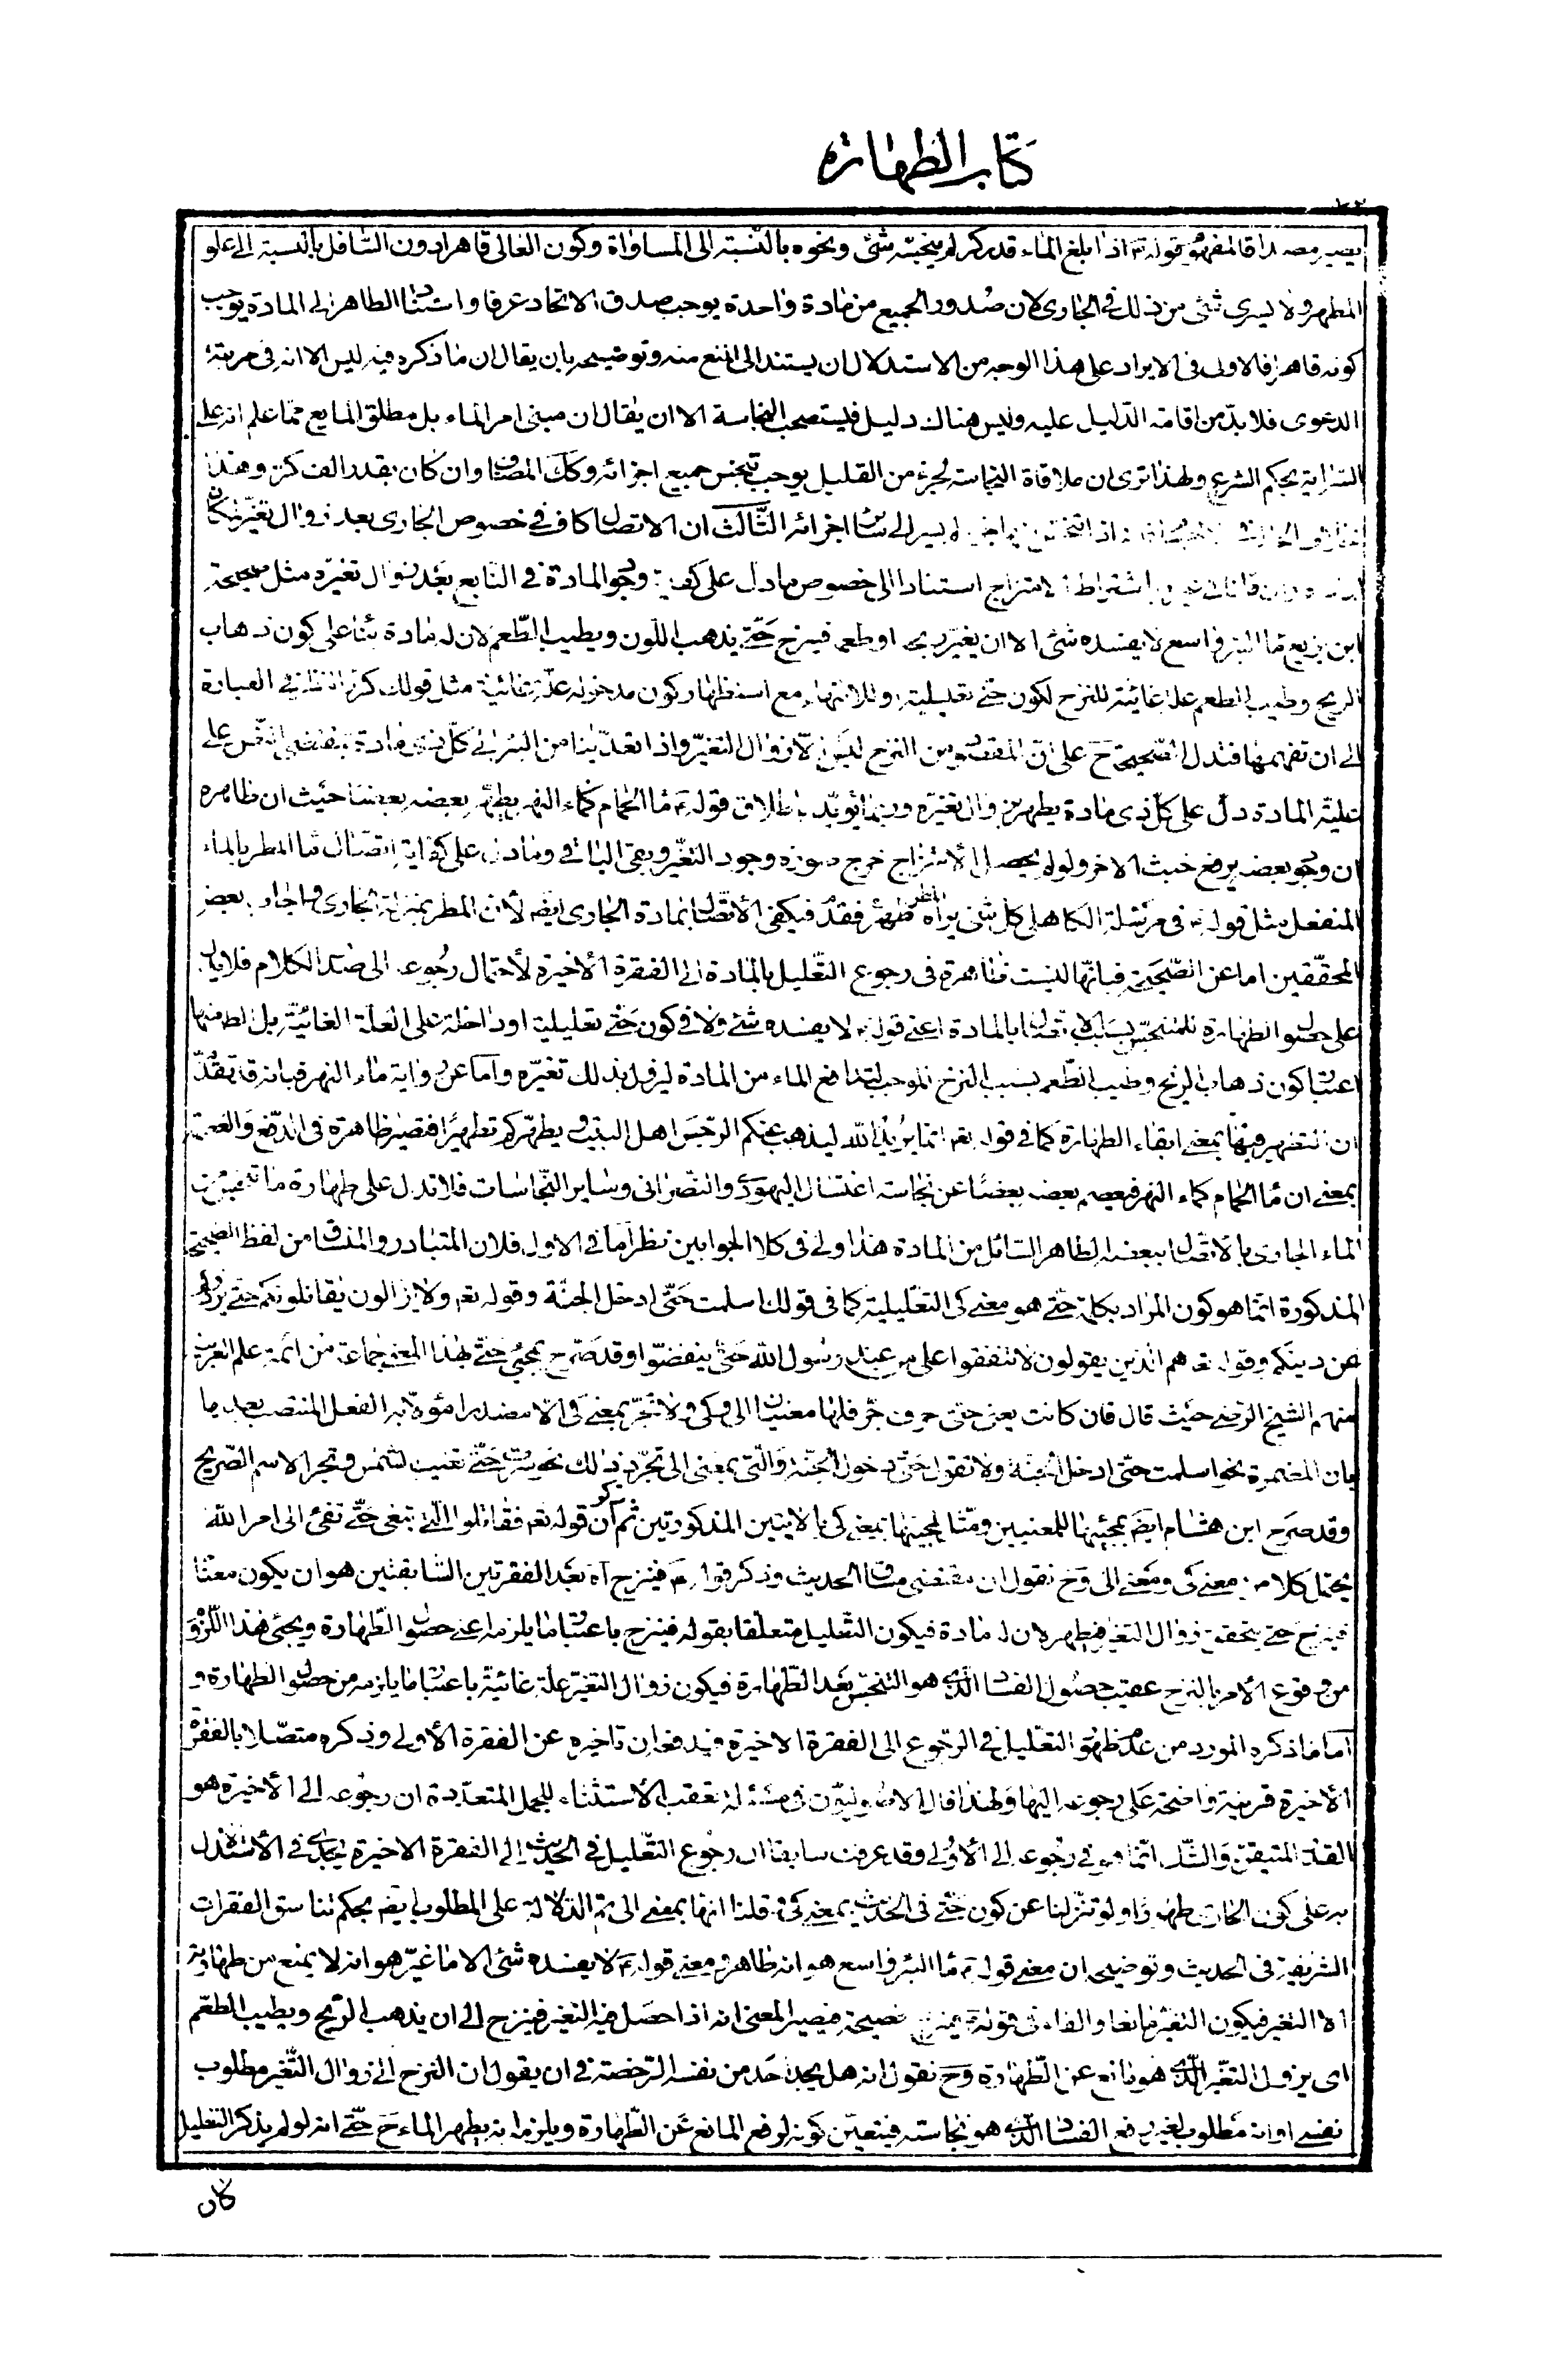 كتاب الطهارة
يصير مصداقا لمفهوم قوله ع اذا بلغ الماء قدر كر لم ينجسه شئ ونحوه بالنسبة الى المساواة وكون العالى قاهرا دون السافل بالنسبة الى علو
المطهر ولا يسرى شئ من ذلك فى الجارى لان صدور الجميع من مادة واحدة يوجب صدق الاتحاد عرفا واستناد الطاهر الى المادة يوجب
كونه قاهرا فالاولى فى الايراد على هذا الوجه من الاستدلال ان يستند الى المنع منه وتوضيحه بان يقال ان ما ذكره فيه ليس الا انه فى مرتبة
الدعوى فلا بد من اقامة الدليل عليه وليس هناك دليل فيستصحب النجاسة الا ان يقال ان مبنى امر الماء بل مطلق المايع مما علم انه على
السراية بحكم الشرع ولهذا ترى ان ملاقاة النجاسة لجزء من القليل يوجب تنجس جميع اجزائه وكك المضاف وان كان بقدر الف كر وهذا
اذا لم يسر الى سائر اجزائه الثالث ان الاتصال كاف فى خصوص الجارى بعد زوال تغيره كان
باشتراط الامتزاج استنادا الى خصوص ما دل على كفاية وجود المادة فى النابع بعد زوال تغيره مثل صحيحة
ابن بزيع ماء البئر واسع لا يفسده شئ الا ان يغير ريحه او طعمه فينزح حتى يذهب اللون ويطيب الطعم لان له مادة بناء على كون ذهاب
الريح وطيب الطعم علة غائية للنزح لكون حتى تعليلية او للانتهاء مع استظهار كون مدخوله علة غائية مثل قولك كرر النظر فى العبارة
الى ان تفهمها فتدل الصحيحة ح على ان المقصود من النزح ليس الا زوال التغير واذا تعدينا من البئر الى كل ذى مادة بمقتضى النص على
علية المادة دل على كل ذى مادة يطهر بزوال تغيره وربما يؤيد باطلاق قوله ع ماء الحمام كماء النهر يطهر بعضه بعضا حيث ان ظاهره
ان وجود بعضه يرفع خبث الاخر ولو لم يحصل الامتزاج خرج صورة وجود التغير وبقى الباقى وما دل على كفاية اتصال ماء المطر بالماء
المنفعل مثل قوله ع فى مرسلة الكاهلى كل شئ يراه المطر فقد طهر فيكفى الاتصال بمادة الجارى ايضا لان المطر بمنزلة الجارى واجاب بعض
المحققين اما عن الصحيحة فبانها ليست ظاهرة فى رجوع التعليل بالمادة الى الفقرة الاخيرة لاحتمال رجوعه الى صدر الكلام فلا يدل
على حصول الطهارة للمتنجس بسبب الاتصال بالمادة اعنى قوله ع لا يفسده شئ ولا فى كون حتى تعليلية او داخلة على العلة الغائية بل الظاهر منها
اعتبار كون ذهاب الريح وطيب الطعم بسبب النزح الموجب لتدافع الماء من المادة ليزول بذلك تغيره واما عن رواية ماء النهر فبانه قد تقدم
ان التطهير فيها بمعنى ابقاء الطهارة كما فى قوله تعم انما يريد الله ليذهب عنكم الرجس اهل البيت ويطهركم تطهيرا فتصير ظاهرة فى الدفع والعصمة
بمعنى ان ماء الحمام كماء النهر فيعصم بعضه بعضا عن نجاسة اغتسال اليهودى والنصرانى وساير النجاسات فلا تدل على طهارة ما تغير من
الماء الجارى بالاتصال ببعضه الطاهر السائل من المادة هذا ولى فى كلا الجوابين نظر اما فى الاول فلان المتبادر والمنساق من لفظ الصحيحة
المذكورة انما هو كون المراد بكلمة حتى هو معنى كى التعليلية كما فى قولك اسلمت حتى ادخل الجنة وقوله تعم ولا يزالون يقاتلونكم حتى يردوكم
عن دينكم وقوله تعم هم الذين يقولون لا تنفقوا على من عند رسول الله حتى ينفضوا وقد صرح بمجئ حتى لهذا المعنى جماعة من ائمة علم العربية
منهم الشيخ الرضى حيث قال فان كانت يعنى حتى حرف جر فلها معنيان الى وكى ولا تجر بمعنى كى الا مصدرا مؤولا به الفعل المنتصب بعدها
بان المضمرة نحو اسلمت حتى ادخل الجنة ولا تقول حتى دخول الجنة والتى بمعنى الى تجر ذلك نحو سرت حتى تغيب الشمس وتجر الاسم الصريح
وقد صرح ابن هشام ايضا بمجيئها للمعنيين ومثل لمجيئها بمعنى كى بالايتين المذكورتين ثم ذكر ان قوله تعم فقاتلوا التى تبغى حتى تفئ الى امر الله
يحتمل كلا من معنى كى ومعنى الى وح نقول ان مقتضى مساق الحديث وذكر قوله ع فينزح اه بعد الفقرتين السابقتين هو ان يكون معناه
فينزح حتى يتحقق زوال التغير فيطهر لان له مادة فيكون التعليل متعلقا بقوله فينزح باعتبار ما يلزمه اعنى حصول الطهارة ويجئ هذا اللزوم
من وقوع الامر بالنزح عقيب حصول الفساد الذى هو التنجس بعد الطهارة فيكون زوال التغير علة غائية باعتبار ما يلزمه من حصول الطهارة و
اما ما ذكره المورد من عدم ظهور التعليل فى الرجوع الى الفقرة الاخيرة فيدفعه ان تاخيره عن الفقرة الاولى وذكره متصلا بالفقرة
الاخيرة قرينة واضحة على رجوعه اليها ولهذا قال الاصوليون فى مسئلة تعقب الاستثناء للجمل المتعددة ان رجوعه الى الاخيرة هو
القدر المتيقن والشك انما هو فى رجوعه الى الاولى وقد عرفت سابقا ان رجوع التعليل فى الحديث الى الفقرة الاخيرة يجدى فى الاستدلال
به على كون الجارى طهورا ولو تنزلنا عن كون حتى فى الحديث بمعنى كى وقلنا انها بمعنى الى تم الدلالة على المطلوب ايضا بحكم تناسق الفقرات
الشريفة فى الحديث وتوضيحه ان معنى قوله ع ماء البئر واسع هو انه طاهر ومعنى قوله ع لا يفسده شئ الا ما غير هو انه لا يمنع من طهارته
الا التغير فيكون التغير مانعا والفاء فى قوله ع فينزح فصيحة فيصير المعنى انه اذا حصل فيه التغير فينزح الى ان يذهب الريح ويطيب الطعم
اى يزول التغير الذى هو مانع عن الطهارة وح نقول انه هل يجد احد من نفسه الرخصة فى ان يقول ان النزح الى زوال التغير مطلوب
نفسى او انه مطلوب لغير رفع الفساد الذى هو نجاسته فيتعين كونه لرفع المانع عن الطهارة ويلزمه انه يطهر الماء ح حتى انه لو لم يذكر التعليل
كان